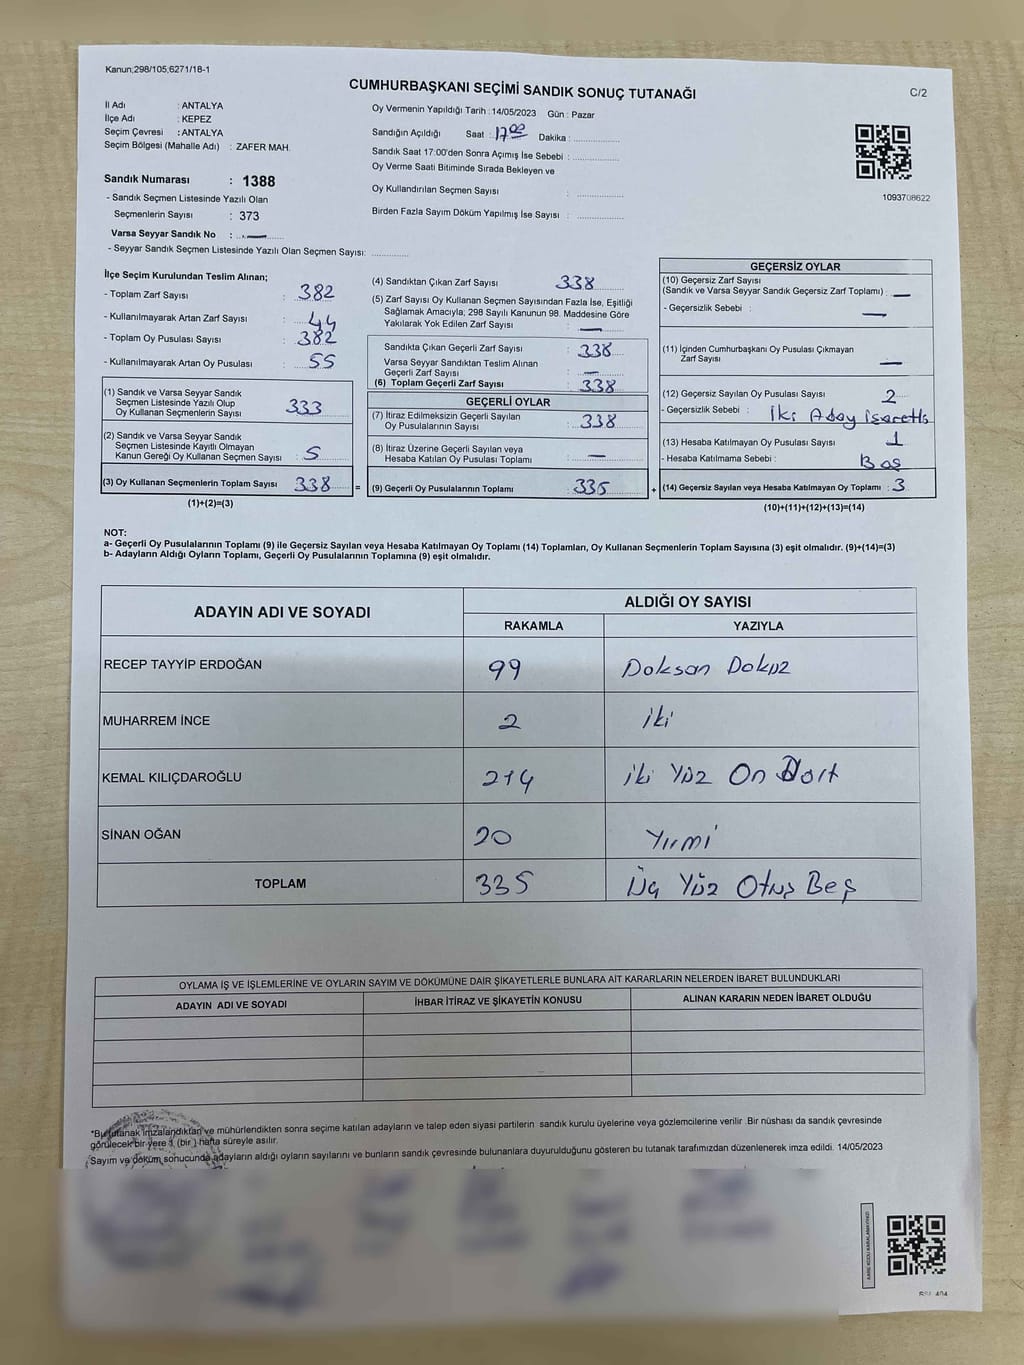 Kanun;298/105;6271/18-1
CUMHURBAŞKANI SEÇİMİ SANDIK SONUÇ TUTANAĞI
C/2
İl Adı : ANTALYA
İlçe Adı : KEPEZ
Seçim Çevresi : ANTALYA
Seçim Bölgesi (Mahalle Adı) : ZAFER MAH.
Oy Vermenin Yapıldığı Tarih :14/05/2023 Gün : Pazar
Sandığın Açıldığı Saat : 17 00 Dakika :
Sandık Saat 17:00'den Sonra Açımış İse Sebebi :
Oy Verme Saati Bitiminde Sırada Bekleyen ve
Oy Kullandırılan Seçmen Sayısı :
Birden Fazla Sayım Döküm Yapılmış İse Sayısı :
1093708622
Sandık Numarası : 1388
- Sandık Seçmen Listesinde Yazılı Olan
Seçmenlerin Sayısı : 373
Varsa Seyyar Sandık No : —
- Seyyar Sandık Seçmen Listesinde Yazılı Olan Seçmen Sayısı:
İlçe Seçim Kurulundan Teslim Alınan;
- Toplam Zarf Sayısı : 382
- Kullanılmayarak Artan Zarf Sayısı : 44
- Toplam Oy Pusulası Sayısı : 382
- Kullanılmayarak Artan Oy Pusulası : 55
(1) Sandık ve Varsa Seyyar Sandık
Seçmen Listesinde Yazılı Olup
Oy Kullanan Seçmenlerin Sayısı 333
(2) Sandık ve Varsa Seyyar Sandık
Seçmen Listesinde Kayıtlı Olmayan
Kanun Gereği Oy Kullanan Seçmen Sayısı : 5
(3) Oy Kullanan Seçmenlerin Toplam Sayısı 338
(1)+(2)=(3)
=
(4) Sandıktan Çıkan Zarf Sayısı 338
(5) Zarf Sayısı Oy Kullanan Seçmen Sayısından Fazla İse, Eşitliği
Sağlamak Amacıyla; 298 Sayılı Kanunun 98. Maddesine Göre
Yakılarak Yok Edilen Zarf Sayısı : —
Sandıkta Çıkan Geçerli Zarf Sayısı : 338
Varsa Seyyar Sandıktan Teslim Alınan
Geçerli Zarf Sayısı : —
(6) Toplam Geçerli Zarf Sayısı : 338
GEÇERLİ OYLAR
(7) İtiraz Edilmeksizin Geçerli Sayılan
Oy Pusulalarının Sayısı : 338
(8) İtiraz Üzerine Geçerli Sayılan veya
Hesaba Katılan Oy Pusulası Toplamı : —
(9) Geçerli Oy Pusulalarının Toplamı : 335
+
GEÇERSİZ OYLAR
(10) Geçersiz Zarf Sayısı
(Sandık ve Varsa Seyyar Sandık Geçersiz Zarf Toplamı) : —
- Geçersizlik Sebebi : —
(11) İçinden Cumhurbaşkanı Oy Pusulası Çıkmayan
Zarf Sayısı —
(12) Geçersiz Sayılan Oy Pusulası Sayısı 2
- Geçersizlik Sebebi : İki Aday işaretlı
(13) Hesaba Katılmayan Oy Pusulası Sayısı 1
- Hesaba Katılmama Sebebi : Boş
(14) Geçersiz Sayılan veya Hesaba Katılmayan Oy Toplamı : 3
(10)+(11)+(12)+(13)=(14)
NOT:
a- Geçerli Oy Pusulalarının Toplamı (9) ile Geçersiz Sayılan veya Hesaba Katılmayan Oy Toplamı (14) Toplamları, Oy Kullanan Seçmenlerin Toplam Sayısına (3) eşit olmalıdır. (9)+(14)=(3)
b- Adayların Aldığı Oyların Toplamı, Geçerli Oy Pusulalarının Toplamına (9) eşit olmalıdır.
ADAYIN ADI VE SOYADI ALDIĞI OY SAYISI
RAKAMLA YAZIYLA
RECEP TAYYİP ERDOĞAN 99 Doksan Dokuz
MUHARREM İNCE 2 iki
KEMAL KILIÇDAROĞLU 214 iki Yüz On Dört
SİNAN OĞAN 20 Yirmi
TOPLAM 335 Üç Yüz Otuz Beş
OYLAMA İŞ VE İŞLEMLERİNE VE OYLARIN SAYIM VE DÖKÜMÜNE DAİR ŞİKAYETLERLE BUNLARA AİT KARARLARIN NELERDEN İBARET BULUNDUKLARI
ADAYIN ADI VE SOYADI İHBAR İTİRAZ VE ŞİKAYETİN KONUSU ALINAN KARARIN NEDEN İBARET OLDUĞU
*Bu tutanak imzalandıktan ve mühürlendikten sonra seçime katılan adayların ve talep eden siyasi partilerin sandık kurulu üyelerine veya gözlemcilerine verilir .Bir nüshası da sandık çevresinde
görülecek bir yere 1 (bir ) hafta süreyle asılır.
Sayım ve döküm sonucunda adayların aldığı oyların sayılarını ve bunların sandık çevresinde bulunanlara duyurulduğunu gösteren bu tutanak tarafımızdan düzenlenerek imza edildi. 14/05/2023